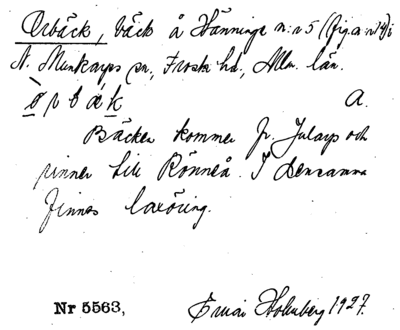 Orbäck, bäck å Hänninge n:r 5 (fig. a: n:r 4) i
N. Munkarps sn., Frosta hd., Mlm. län.
ò r b ä k A.
Bäcken kommer fr. Jularp och
rinner till Rönneå. I densamma
finnes laxöring.
Nr 5563, Holmberg 1927.